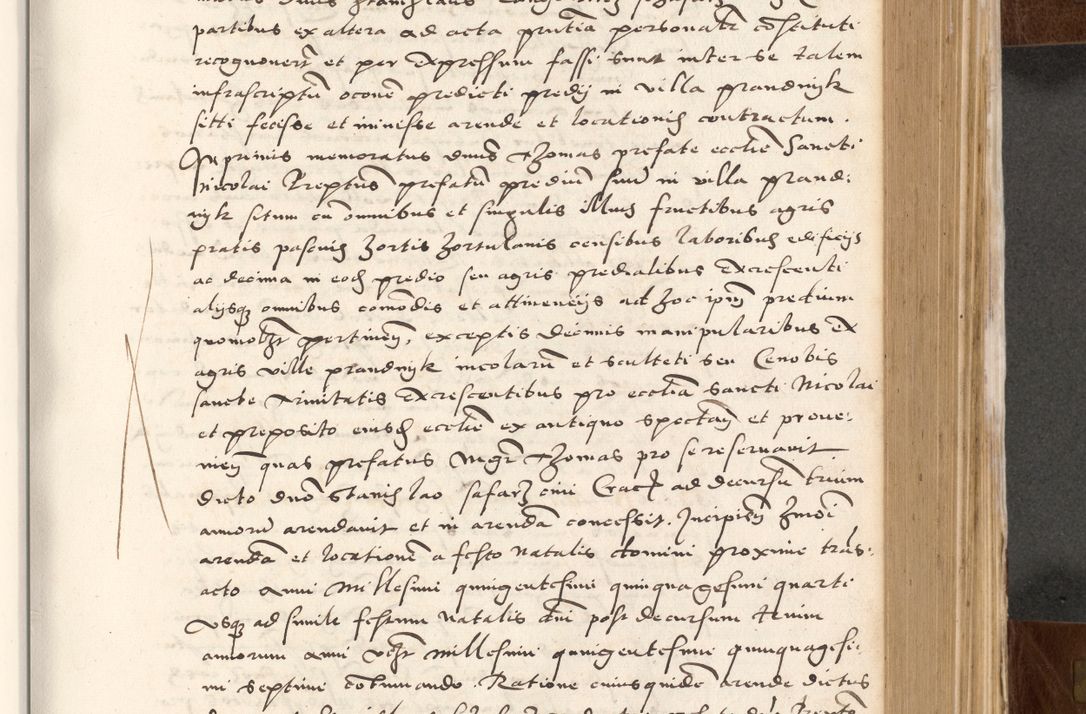 partibus ex altera ad acta pntia personalr constituti
recognouert et per expressum fassi sunt inter se talem
infrascriptu oconem predicti predij in villa prandnyk
sitti fecisse et iniuisse arende et locationis contractum.
Inprimis memoratus dnus Thomas prefate ecclie Sancti
Nicolai Preptus prefatu prediu suu in villa prand:
nyk situm cu omnibus et singulis illius fructibus agris
pratis pascuis hortis hortulanis censibus laboribus edificijs
ac decima in eodem predio seu agris predialibus excrescenti
alijsq omnibus comodis et attinencijs ad hoc ipm predium
quomolt pertinen, exceptis decimis manipularibus ex
agris ville prandnyk incolaru et sculteti seu Cenobis
sancte trinitatis excrescentibus pro ecclia sancti Nicolai
et preposito eiusdem ecclie ex antiquo spectan et proue:
nien quas prefatus Mgr Thomas pro se reseruauit
dicto dno Stanislao safarz ciui Crac ad decursu trium
annoru arendauit et in arenda concessit. Incipien hmoi
arenda et locatione a festo natalis domini proxime tras:
acto anni Millesimi quingentesimi quinquagesimi quarti
vsq ad simile festum natalis dni post decursum trium
annorum anni vero millesimi quingentesimi quinquagesi:
mi septimi continuando. Ratione cuiusquidem arende dictus